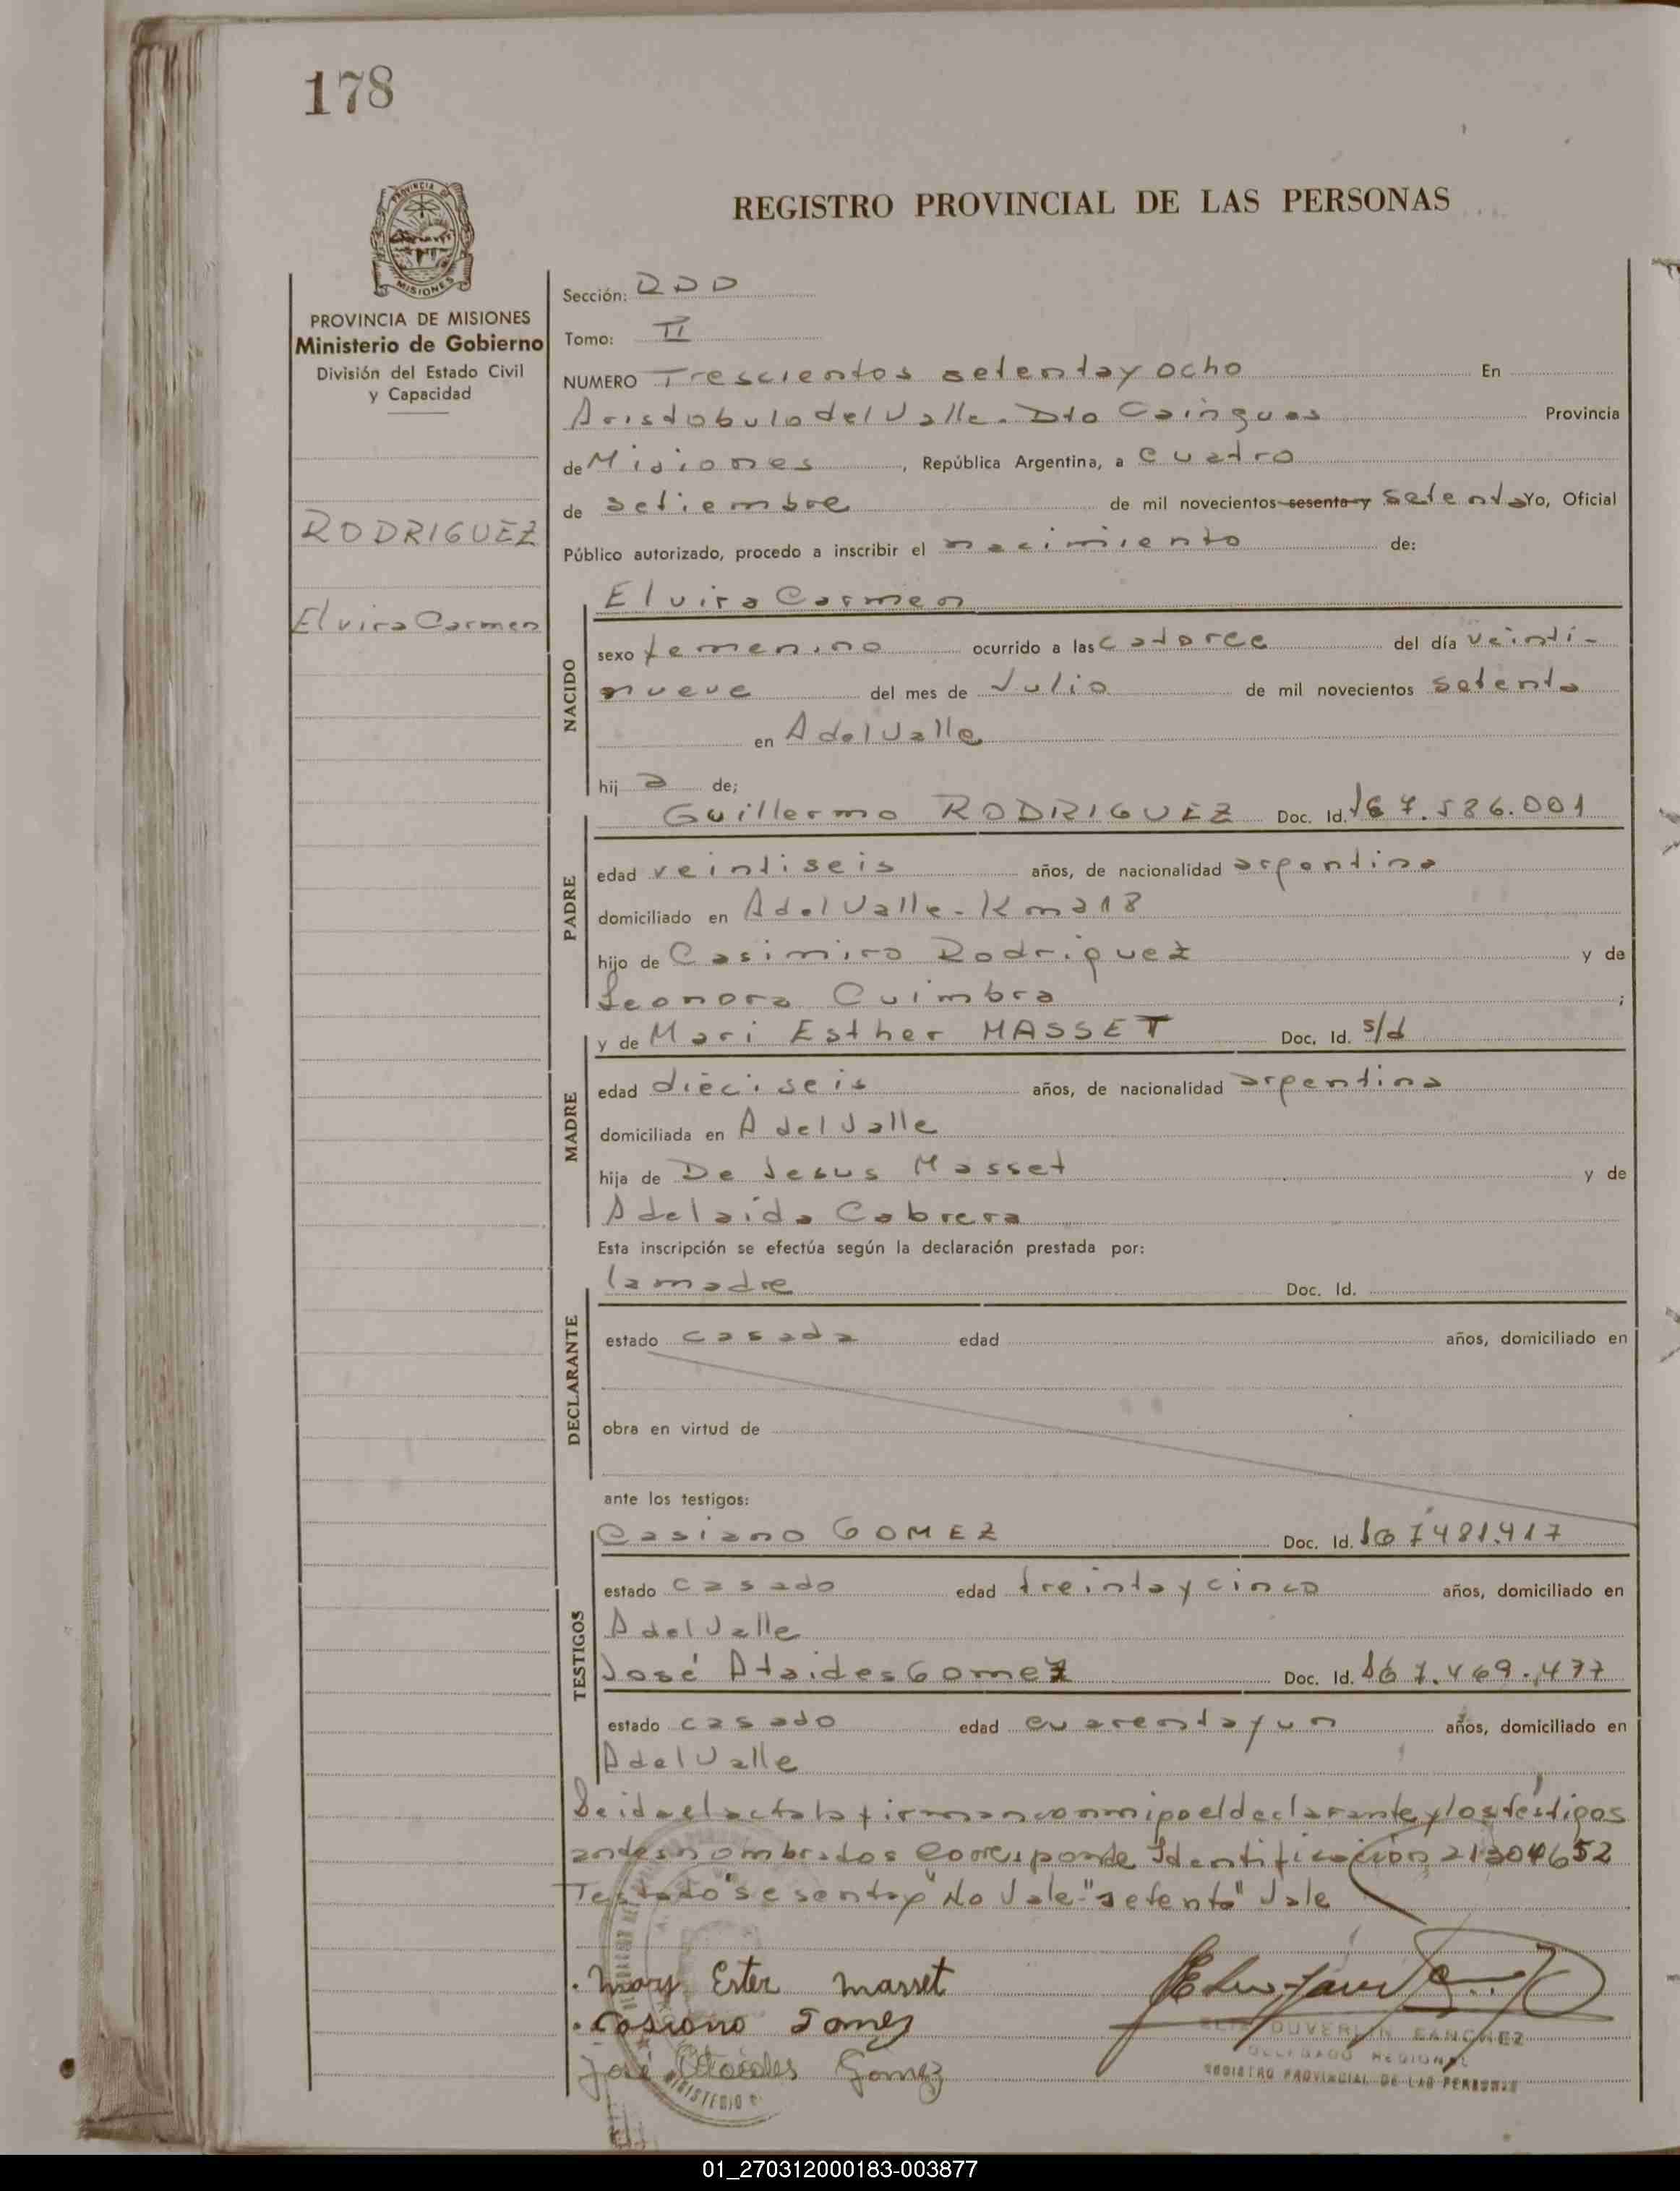 178
PROVINCIA DE
MISIONES
REGISTRO PROVINCIAL DE LAS PERSONAS
PROVINCIA DE MISIONES
Ministerio de Gobierno
División del Estado Civil
y Capacidad
RODRIGUEZ
Elvira Carmen
Sección: DDD
Tomo: II
NUMERO Trescientos setenta y ocho En
Aristobulo del Valle. Dto Cainguas Provincia
de Misiones, República Argentina, a cuatro
de setiembre de mil novecientos sesenta y setenta Yo, Oficial
Público autorizado, procedo a inscribir el nacimiento de:
NACIDO
Elvira Carmen
sexo femenino ocurrido a las catorce del día veinti-
nueve del mes de Julio de mil novecientos setenta
en A del Valle
hija de;
PADRE
Guillermo RODRIGUEZ Doc. Id. 7.586.001
edad veintiseis años, de nacionalidad argentina
domiciliado en A del Valle. Km 218
hijo de Casimiro Rodriguez y de
Leonora Cuimbra ;
MADRE
y de Mari Esther MASSET Doc. Id. s/d
edad dieciseis años, de nacionalidad argentina
domiciliada en A del Valle
hija de De Jesus Masset y de
Adelaida Cabrera
Esta inscripción se efectúa según la declaración prestada por:
DECLARANTE
la madre Doc. Id.
estado casada edad años, domiciliado en
obra en virtud de
ante los testigos:
TESTIGOS
Casiano GOMEZ Doc. Id. 7481.417
estado casado edad treinta y cinco años, domiciliado en
A del Valle
José Ataides Gomez Doc. Id. 7.469.477
estado casado edad cuarenta y un años, domiciliado en
A del Valle
Leida el acta la firman conmigo el declarante y los testigos
antes nombrados Corresponde Identificación 21304652
Testado "sesenta y" No Vale "setenta" Vale
Mary Ester Masset
Casiano Gomez
José Ataides Gomez
DUVERLIN SANCHEZ
DELEGADO REGIONAL
REGISTRO PROVINCIAL DE LAS PERSONAS
MINISTERIO
01_270312000183-003877